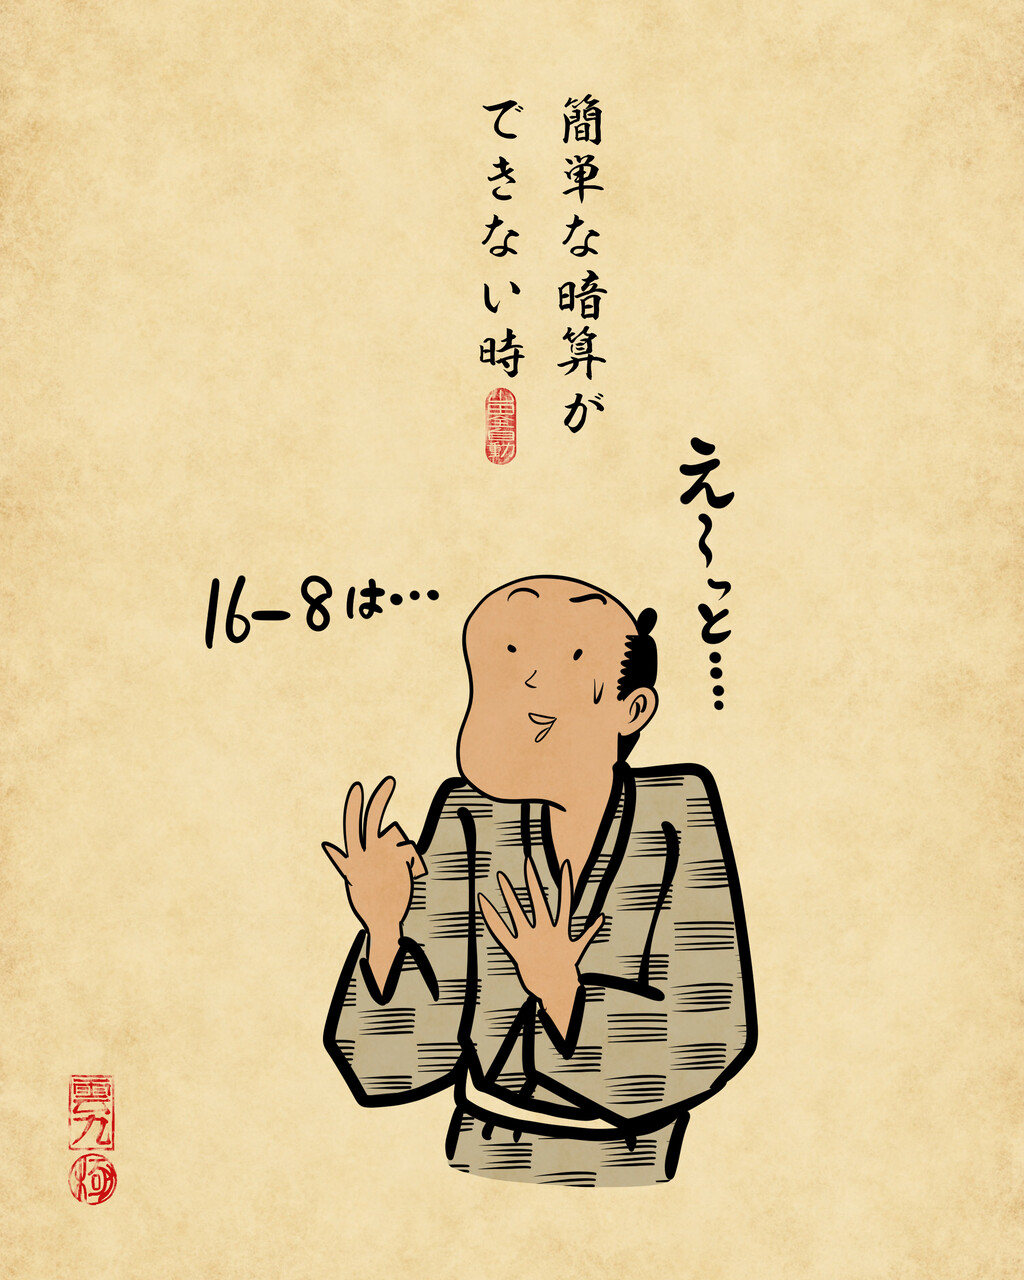 簡単な暗算が
できない時
え〜っと……
16-8は…